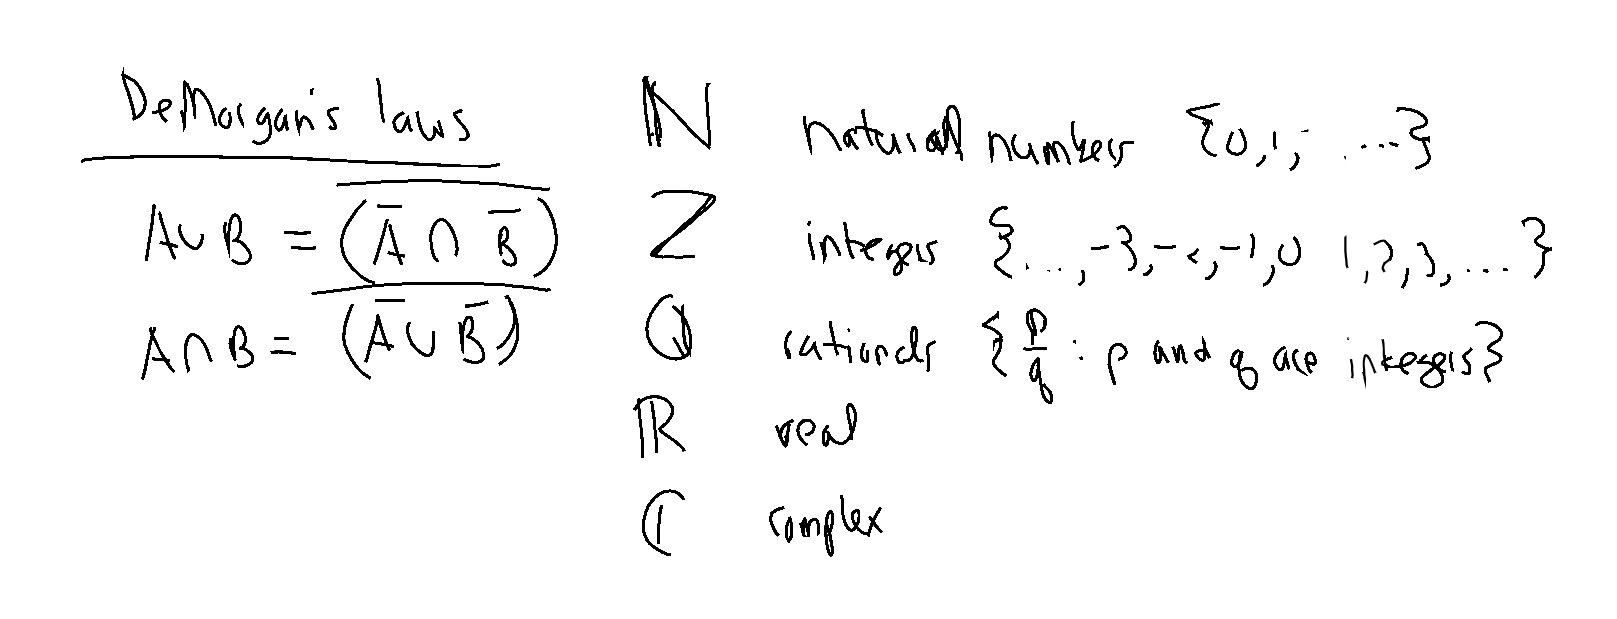 DeMorgan's laws
A∪B = \overline{(\overline{A} ∩ \overline{B})}
A∩B = \overline{(\overline{A} ∪ \overline{B})}
ℕ natural numbers {0,1, ....}
ℤ integers {...,-3,-2,-1,0 1,2,3,...}
ℚ rationals {p/q : p and q are integers}
ℝ real
ℂ complex